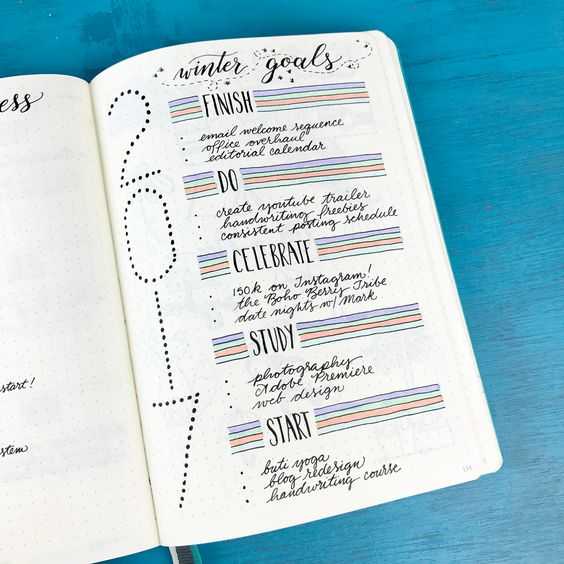 ess
start!
stem
winter goals
2017
FINISH
• email welcome sequence
• office overhaul
• editorial calendar
DO
• create youtube trailer
• handwriting freebies
• consistent posting schedule
CELEBRATE
• 150k on Instagram!
• the Boho Berry Tribe
• date nights w/ Mark
STUDY
• photography
• Adobe Premiere
• web design
START
• buti yoga
• blog redesign
• handwriting course